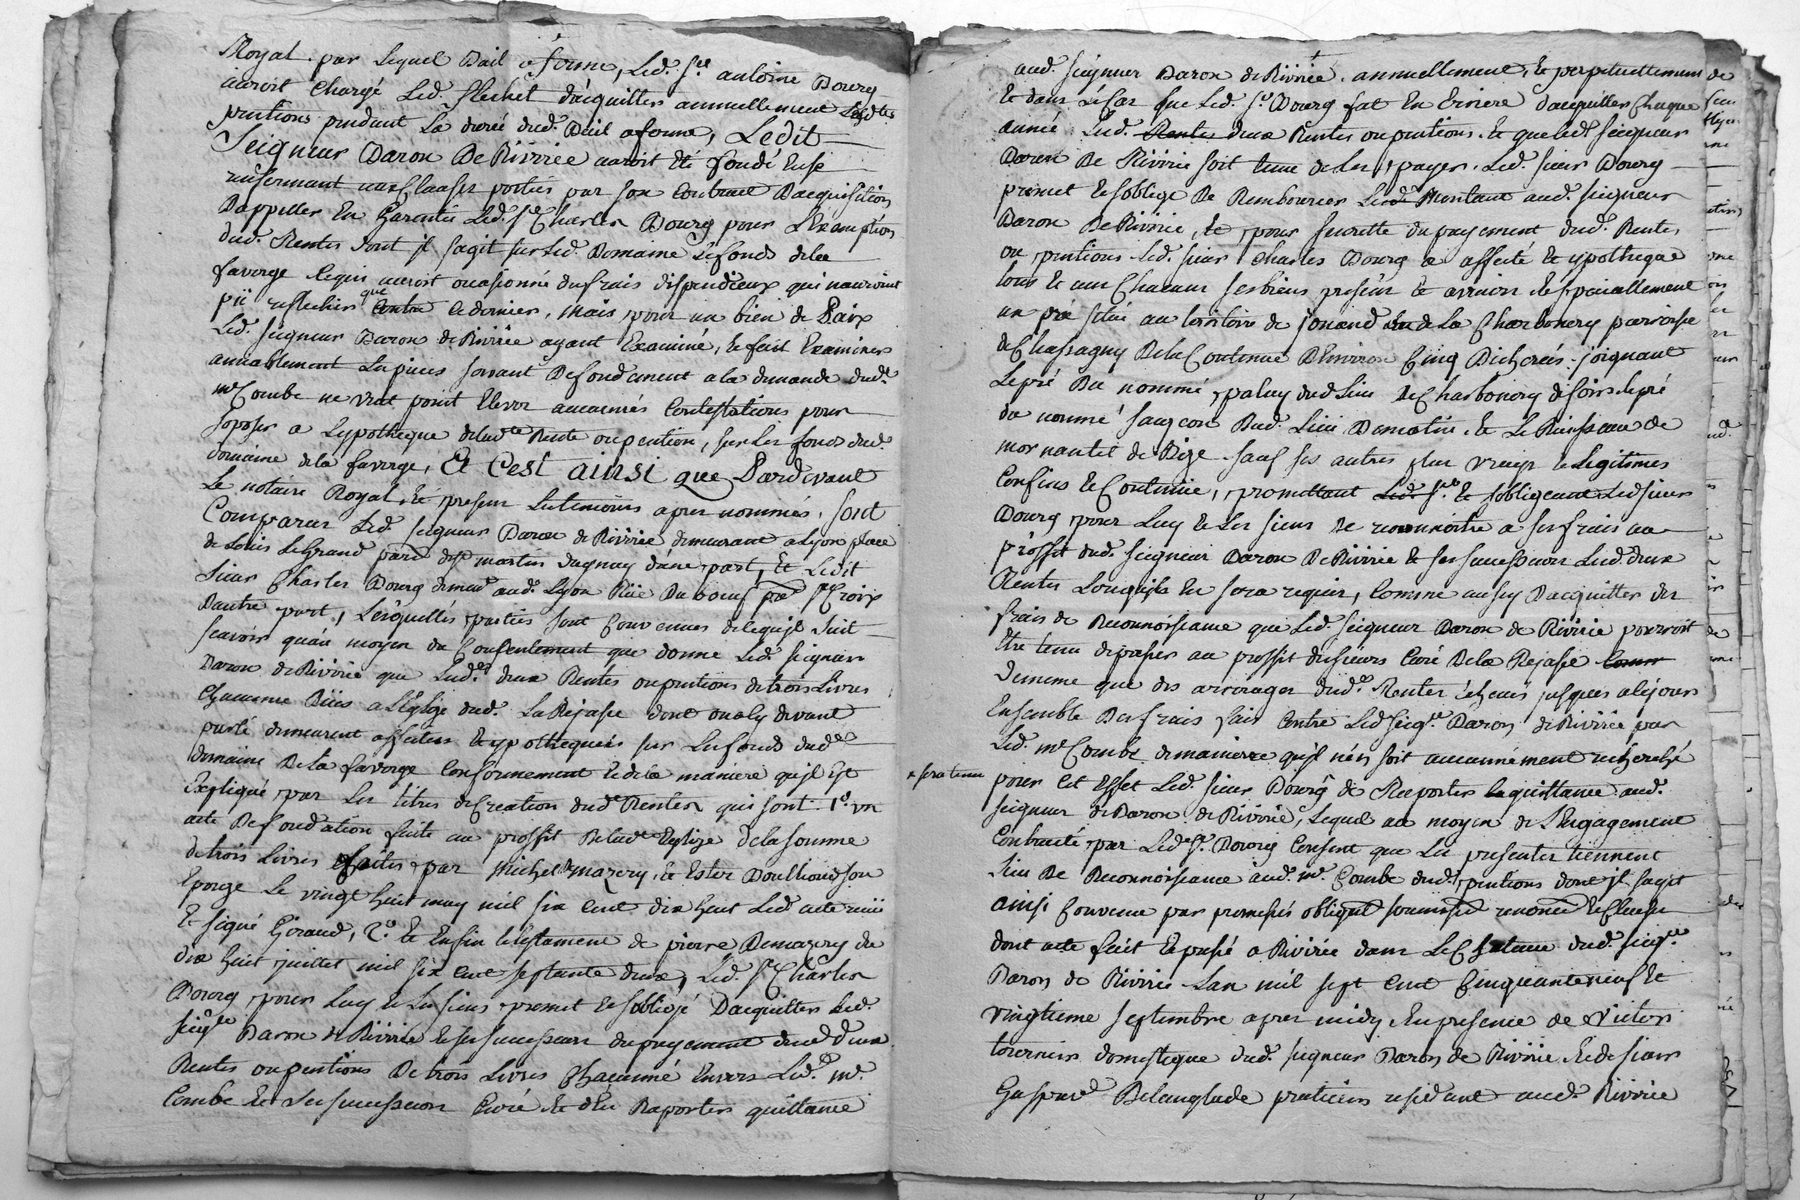 Royal par lequel Bail a ferme, Led. Sr. antoine Bourg
auroit Chargé Led. flechet d'acquitter annuellement Lesdtes
pentions pendant La durée dud. Bail a ferme, Ledit
Seigneur Baron De Riviríe auroit Eté fondé Ense
renfermant aux Clauses portées par son Contract D'acquisition
D'appeller En Garentie Led. Sr. Charles Bourg pour L'Exemption
dud. Rentes dont jl s'agit sur Led. Domaine & fonds de la
faverge ce qui auroit occasionné des frais dispendieux qui n'auroint
pü reflechir que Contre ce dernier, Mais pour un bien de Paix
Led. Seigneur Baron de Riviríe ayant Examiné, & fait Examiner
amiablement Les pieces servant De fondement a la demande dud.
me Combe ne veut point Elever aucunnés Contestations pour
s'oposer a L'ypotheque de lad.te Rente ou pention, sur Les fonds dud.
domaine de la faverge, Et C'est ainsi que Pardevant
Le notaire Royal, & presens Les temoins apres nommés, sont
Comparus Led. Seigneur Baron de Riviríe demeurant a Lyon place
de Loüis Le Grand paroisse de St martin d'aynay d'une part, Et Ledit
Sieur Charles Bourg demt aud. Lyon Rüe Du boeuf psse Ste Croix
D'autre part, Lesquelles parties sont Convenues de ce qui suit
scavoir quau moyen du Consentement que donne Led. Seigneur
Baron de Riviríe que Lesd. deux Rentes ou pentions de trois Livres
Chacunne Düés a L'Eglize dud. La Rejasse dont on a cy devant
parlé demeurent affectées & ypothequées sur Les fonds dud.
domaine De la faverge Conformement & de la maniere qu'jl Est
Expliqué par Les titres de Creation dud. Rentes qui sont 1°. un
acte De fondation faite au proffit De lad. Eglize de la somme
de trois Livres faites par Michel Demazery, & Ester Boullioud son
Epouze Le vingt huit may mil six cent dix huit Led. acte reçu
& signé Giraud, 2°. & Enfin le testament de pierre Demazery du
dix huit juillet mil six cent septante deux, Led. Sr Charles
Bourg pour Luy & Les siens promet & s'oblige D'acquitter Led.
Seigr Baron de Riviríe & ses successeurs du payement dud. deux
Rentes ou pentions De trois Livres Chacunné Envers Led. me.
Combe & ses successeurs Curé & d'En Raporter quittance
aud. Seigneur Baron de Riviríe annuellement, & perpetuellement
& dans Le Cas que Led. Sr Bourg fut En Erriere d'acquitter Chaque
année Lesd. Rentes deux Rentes ou pentions, & que led. Seigneur
Baron De Riviríe soit tenu de Les payer. Led. sieur Bourg
promet & s'oblige De Rembourcer Led. Montant aud. Seigneur
Baron De Riviríe, & pour seurette du payement dud. Rentes
ou pentions Led. sieur Charles Bourg a affecté & ypotheque
tous & un Chacun ses biens presens & avenir & speciallement
un pré situé au territoire de jonand ou de La Charbonery paroisse
de Chassagny De la Contenue D'Environ Cinq Bicherées joignant
Le pré Du nommé paluy dud. Lieu de Charbonery de soir le pré
du nommé saugeon Dud. Lieu De matin & Le Ruisseau de
mornantet de Bize sauf ses autres plus vrayx & Legitimes
Confins & Contenüe, promettant Led. Sr. & s'obligeant Led. sieur
Bourg pour Luy & Les siens de reconnoitre a ses frais au
proffit dud. Seigneur Baron De Riviríe & ses successeurs Lesd. deux
Rentes Lorsqu'jls En sera requis, Comme aussy D'acquitter Les
frais de Reconnoissance que Led. Seigneur Baron de Riviríe pourroit
Etre tenu de passer au proffit des sieurs Curé De la Rejasse
De meme que des arrerages dud. Rentes Echeus jusques a ce jour
Ensemble Des frais fais Contre Led. Seigr. Baron de Riviríe par
Led. me Combe de manierre qu'jl n'en soit aucunnément recherché
× sera tenu
pour Cet Effet Led. sieur Bourg de Raporter la quittance aud.
Seigneur de Baron de Riviríe, Lequel au moyen de L'Engagement
Contracté par Led. Sr. Bourg Consent que Les presentes tiennent
Lieu De Reconnoissance aud. me. Combe dud. pentions dont jl s'agit
ainsi Convenu par promesses obligaon soumission renonon & Clause
dont acte fait & passé a Riviríe dans Le Chateau dud. Seigr
Baron de Riviríe L'an mil sept cent Cinquante neuf &
vingtieme septembre apres midy En presence de Victor
tournier domestique dud. Seigneur Baron de Riviríe & de sieur
Gaspard Delanglade praticien residant aud. Riviríe